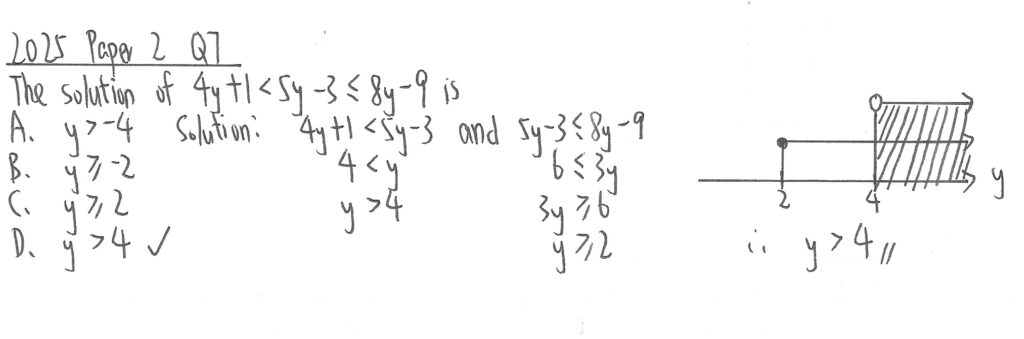 2025 Paper 2 Q7
The solution of 4y+1<5y-3≤8y-9 is
A. y>-4 Solution: 4y+1<5y-3 and 5y-3≤8y-9
B. y≥-2 4<y 6≤3y
C. y≥2 y>4 3y≥6
D. y>4 ✓ y≥2
2 4 y
∴ y>4 //